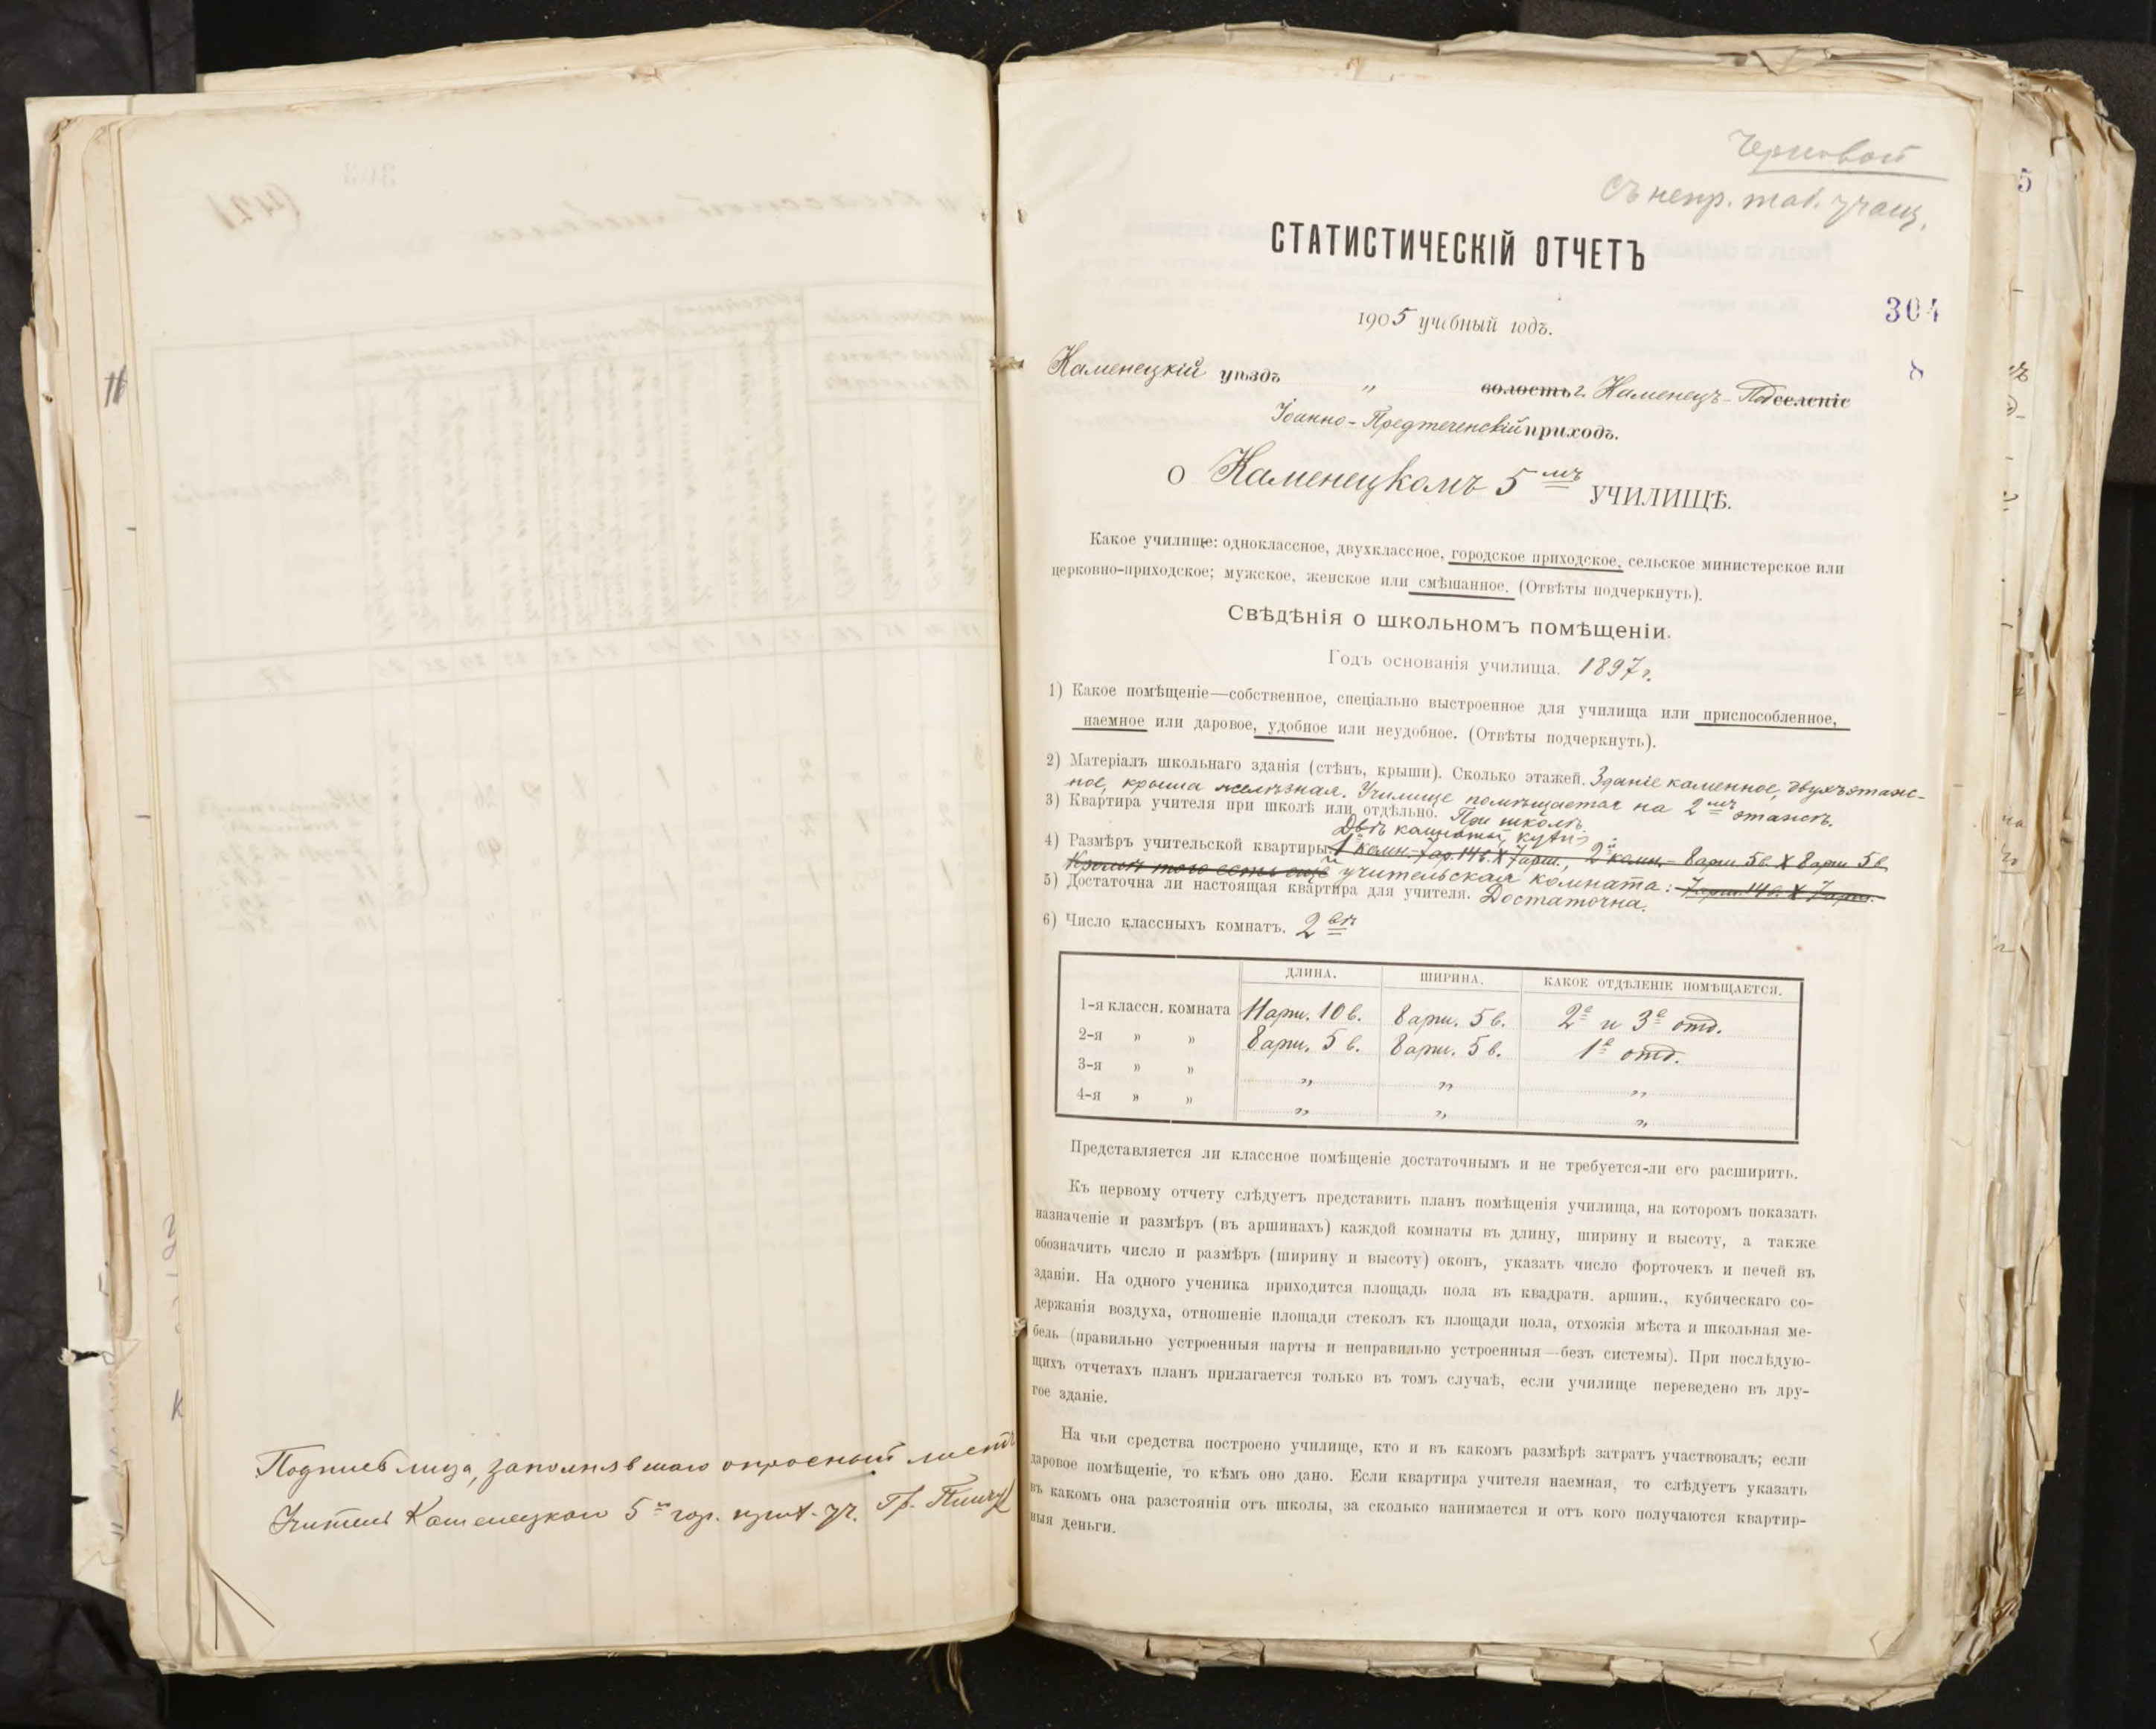 Подпись лица, заполнявшаго опросный листъ
Учитель Каменецкаго 5го гор. прих. уч. Гр.
Черновой
Съ непр. таб. учащ.
СТАТИСТИЧЕСКІЙ ОТЧЕТЪ
304
1905 учебный годъ.
8
Каменецкій уѣздъ „ волость г. Каменецъ-Под селеніе
Іоанно-Предтеченскій приходъ.
О Каменецкомъ 5мъ УЧИЛИЩѢ.
Какое училище: одноклассное, двухклассное, городское приходское, сельское министерское или
церковно-приходское; мужское, женское или смѣшанное. (Отвѣты подчеркнуть).
Свѣдѣнія о школьномъ помѣщеніи.
Годъ основанія училища. 1897 г.
1) Какое помѣщеніе—собственное, спеціально выстроенное для училища или приспособленное,
наемное или даровое, удобное или неудобное. (Отвѣты подчеркнуть).
2) Матеріалъ школьнаго зданія (стѣнъ, крыши). Сколько этажей. Зданіе каменное, двухъэтаж-
ное, крыша желѣзная. Училище помѣщается на 2мъ этажѣ.
3) Квартира учителя при школѣ или отдѣльно. При школѣ.
Двѣ комнаты, кухня
4) Размѣръ учительской квартиры. 1я комн. 7 ар. 14 в. X 7 арш., 2я комн. – 8 арш. 5 в. X 8 арш. 5 в.
Кромѣ того есть еще и учительская комната: 7 арш. 14 в. X 7 арш.
5) Достаточна ли настоящая квартира для учителя. Достаточна.
6) Число классныхъ комнатъ. 2вѣ
ДЛИНА. ШИРИНА. КАКОЕ ОТДѢЛЕНІЕ ПОМѢЩАЕТСЯ.
1-я классн. комната 11 арш. 10 в. 8 арш. 5 в. 2е и 3е отд.
2-я » » 8 арш. 5 в. 8 арш. 5 в. 1е отд.
3-я » » „ „ „
4-я » » „ „ „
Представляется ли классное помѣщеніе достаточнымъ и не требуется-ли его расширить.
Къ первому отчету слѣдуетъ представить планъ помѣщенія училища, на которомъ показать
назначеніе и размѣръ (въ аршинахъ) каждой комнаты въ длину, ширину и высоту, а также
обозначить число и размѣръ (ширину и высоту) оконъ, указать число форточекъ и печей въ
зданіи. На одного ученика приходится площадь пола въ квадратн. аршин., кубическаго со-
держанія воздуха, отношеніе площади стеколъ къ площади пола, отхожія мѣста и школьная ме-
бель (правильно устроенныя парты и неправильно устроенныя—безъ системы). При послѣдую-
щихъ отчетахъ планъ прилагается только въ томъ случаѣ, если училище переведено въ дру-
гое зданіе.
На чьи средства построено училище, кто и въ какомъ размѣрѣ затратъ участвовалъ; если
даровое помѣщеніе, то кѣмъ оно дано. Если квартира учителя наемная, то слѣдуетъ указать
въ какомъ она разстояніи отъ школы, за сколько нанимается и отъ кого получаются квартир-
ныя деньги.